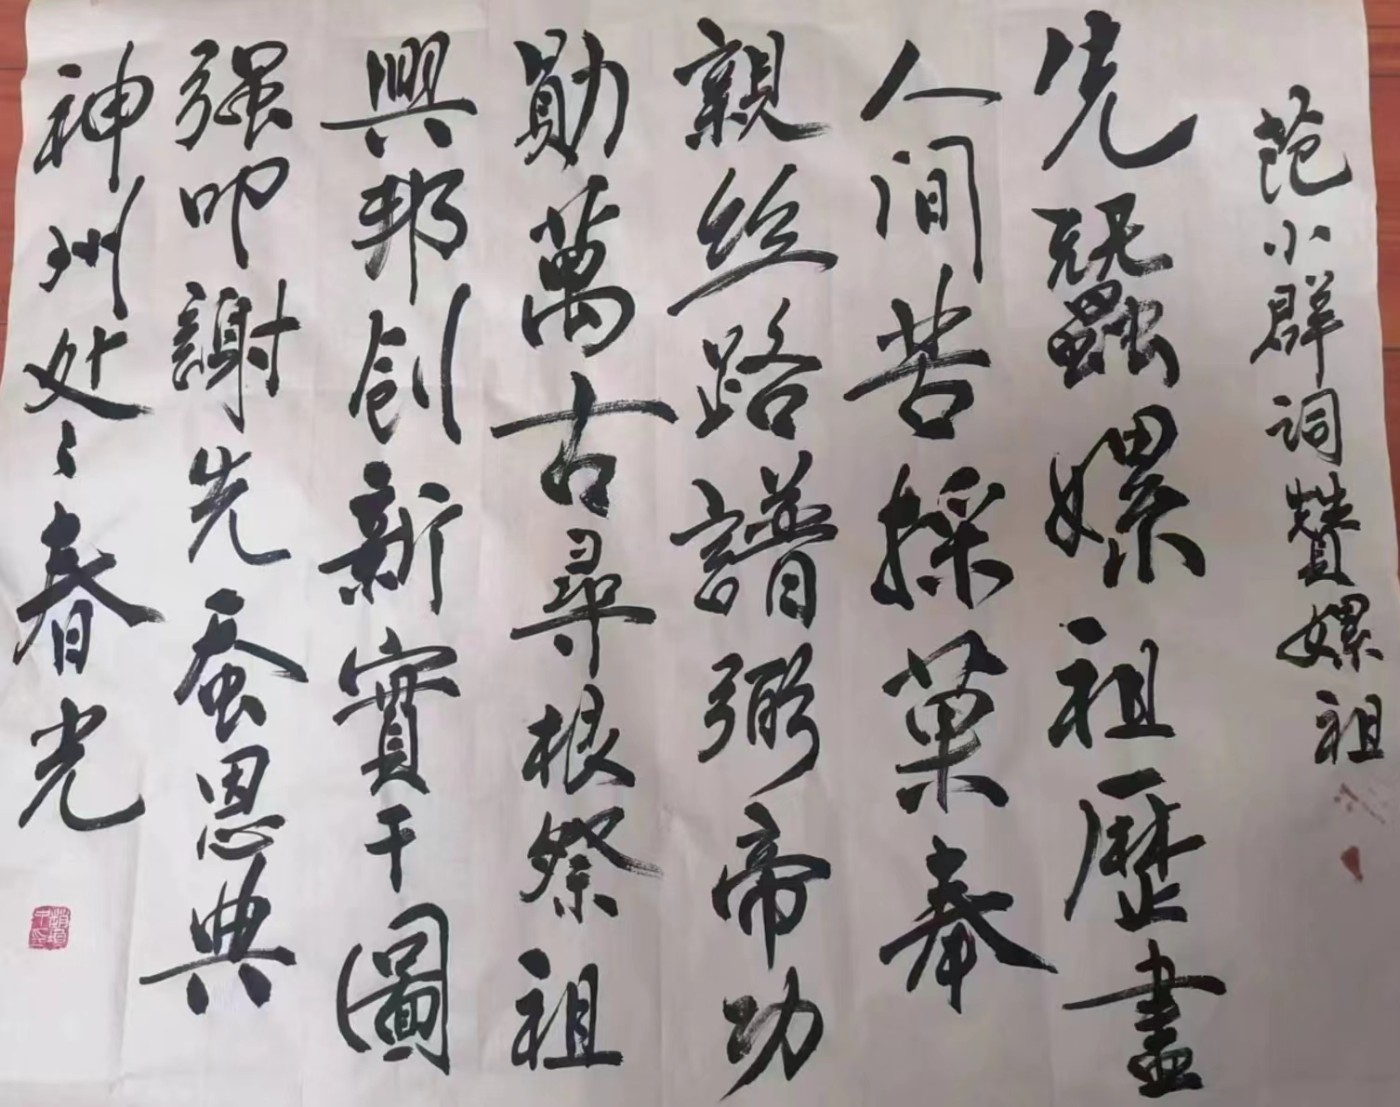 范小群词赞嫘祖
先蠶嫘祖歷盡
人间苦採菓奉
親丝路譜弼帝功
勛萬古尋根祭祖
興邦創新實干圖
强叩謝先蚕恩典
神州处〻春光